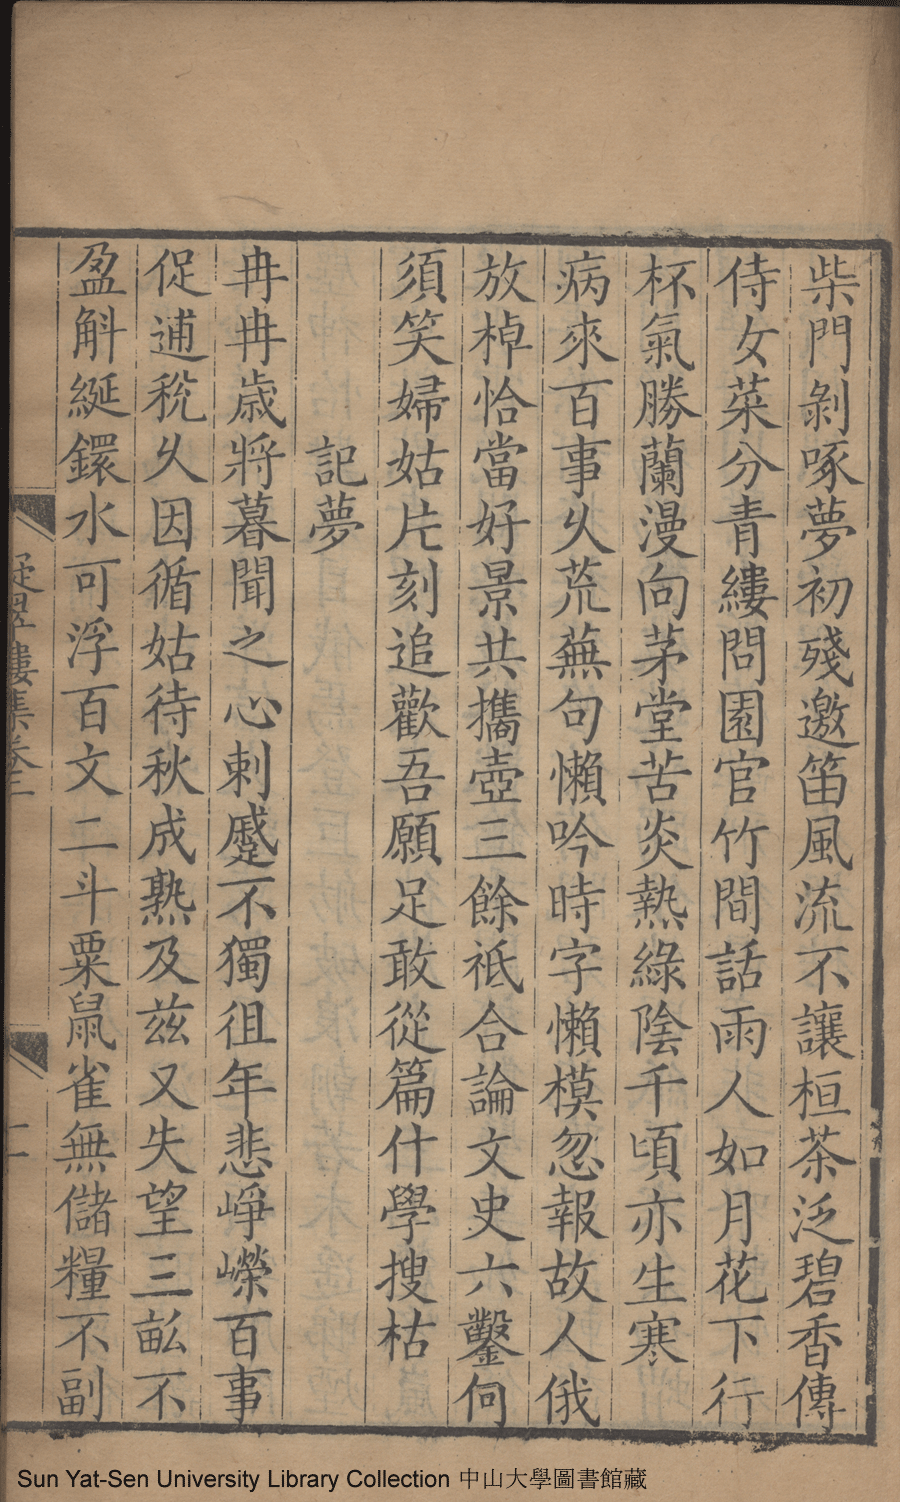 柴門剝啄夢初殘邀笛風流不讓桓茶泛碧香傳
侍女菜分青縷問園官竹間話雨人如月花下行
杯氣勝蘭漫向茅堂苦炎熱綠陰千頃亦生寒
病來百事乆荒蕪句懶吟時字懶模忽報故人俄
放棹恰當好景共攜壺三餘祗合論文史六鑿何
須笑婦姑片刻追歡吾願足敢從篇什學搜枯
記夢
冉冉歳將暮聞之心刺蹙不獨徂年悲崢嶸百事
促逋稅乆因循姑待秋成熟及兹又失望三畝不
盈斛綖鐶水可浮百文二斗粟鼠雀無儲糧不副
翠樓集卷三
十一
Sun Yat-Sen University Library Collection 中山大學圖書館藏